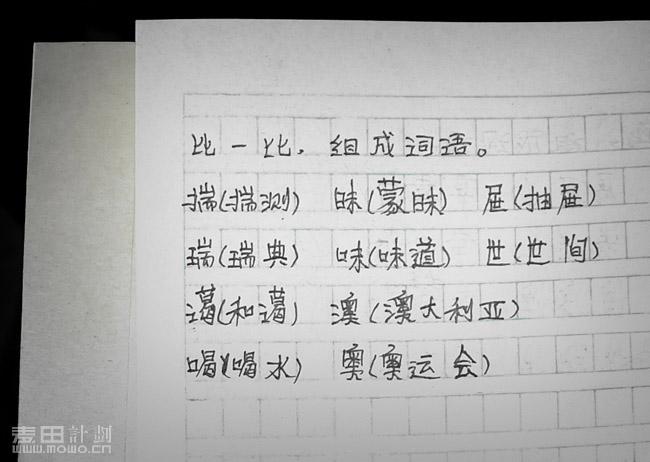 比一比,组成词语。
揣(揣测) 昧(蒙昧) 屉(抽屉)
瑞(瑞典) 味(味道) 世(世间)
蔼(和蔼) 澳(澳大利亚)
喝(喝水) 奥(奥运会)
麦田計劃
www.mowo.cn